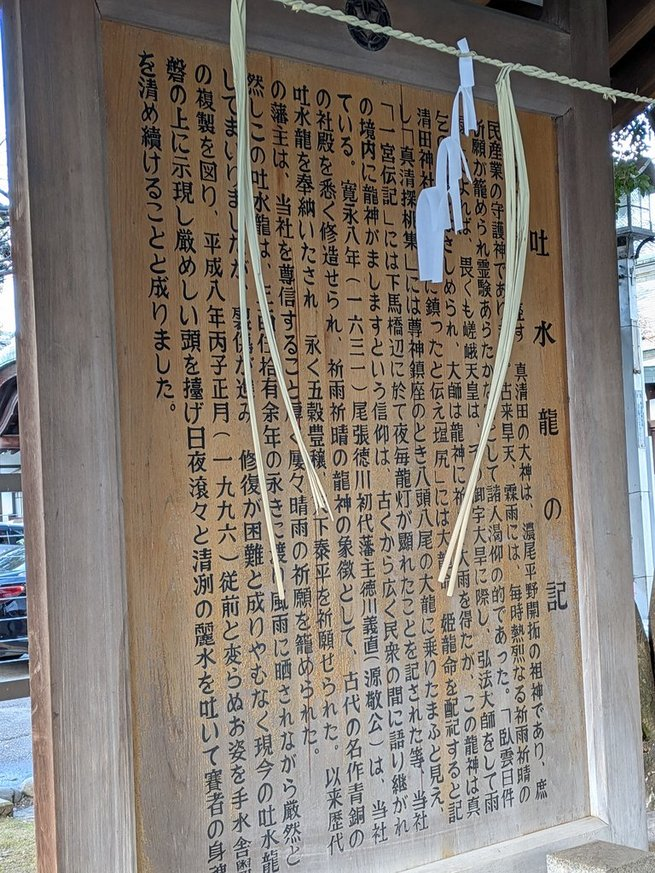 吐水龍の記
座す 真清田の大神は、濃尾平野開拓の祖神であり、庶
民産業の守護神であり 古来旱天、霖雨には 毎時熱烈なる祈雨祈晴の
祈願が籠められ霊験あらたかな として諸人渇仰の的であった。「臥雲日件
よれば、畏くも嵯峨天皇は 御宇大旱に際し、弘法大師をして雨
乞 しめられ、大師は龍神に祈 大雨を得たが この龍神は真
清田神社 に鎮ったと伝え「塩尻」には大 姫龍命を配祀すると記
し「真清探桃集 」には尊神鎮座のとき八頭八尾の大龍に乗りたまふと見え、
「一宮伝記」には下馬橋辺に於て夜毎龍灯が顕れたことを記された等、当社
の境内に龍神がましますという信仰は 古くから広く民衆の間に語り継がれ
ている。寛永八年(一六三一)尾張徳川初代藩主徳川義直(源敬公)は、当社
の社殿を悉く修造せられ、祈雨祈晴の龍神の象徴として、古代の名作青銅の
吐水龍を奉納いたされ 永く五穀豊穣、 下泰平を祈願せられた。以来歴代
の藩主は、当社を尊信すること 屡々晴雨の祈願を籠められた。
然しこの吐水龍は、 百有余年の永き 風雨に晒されながら厳然と
してまいりましたが、 進み 修復が困難と成りやむなく現今の吐水龍
の複製を図り、平成八年丙子正月(一九九六)従前と変らぬお姿を手水舎
磐の上に示現し厳めしい頭を擡げ日夜滾々と清冽の麗水を吐いて賽者の身
を清め続けることと成りました。